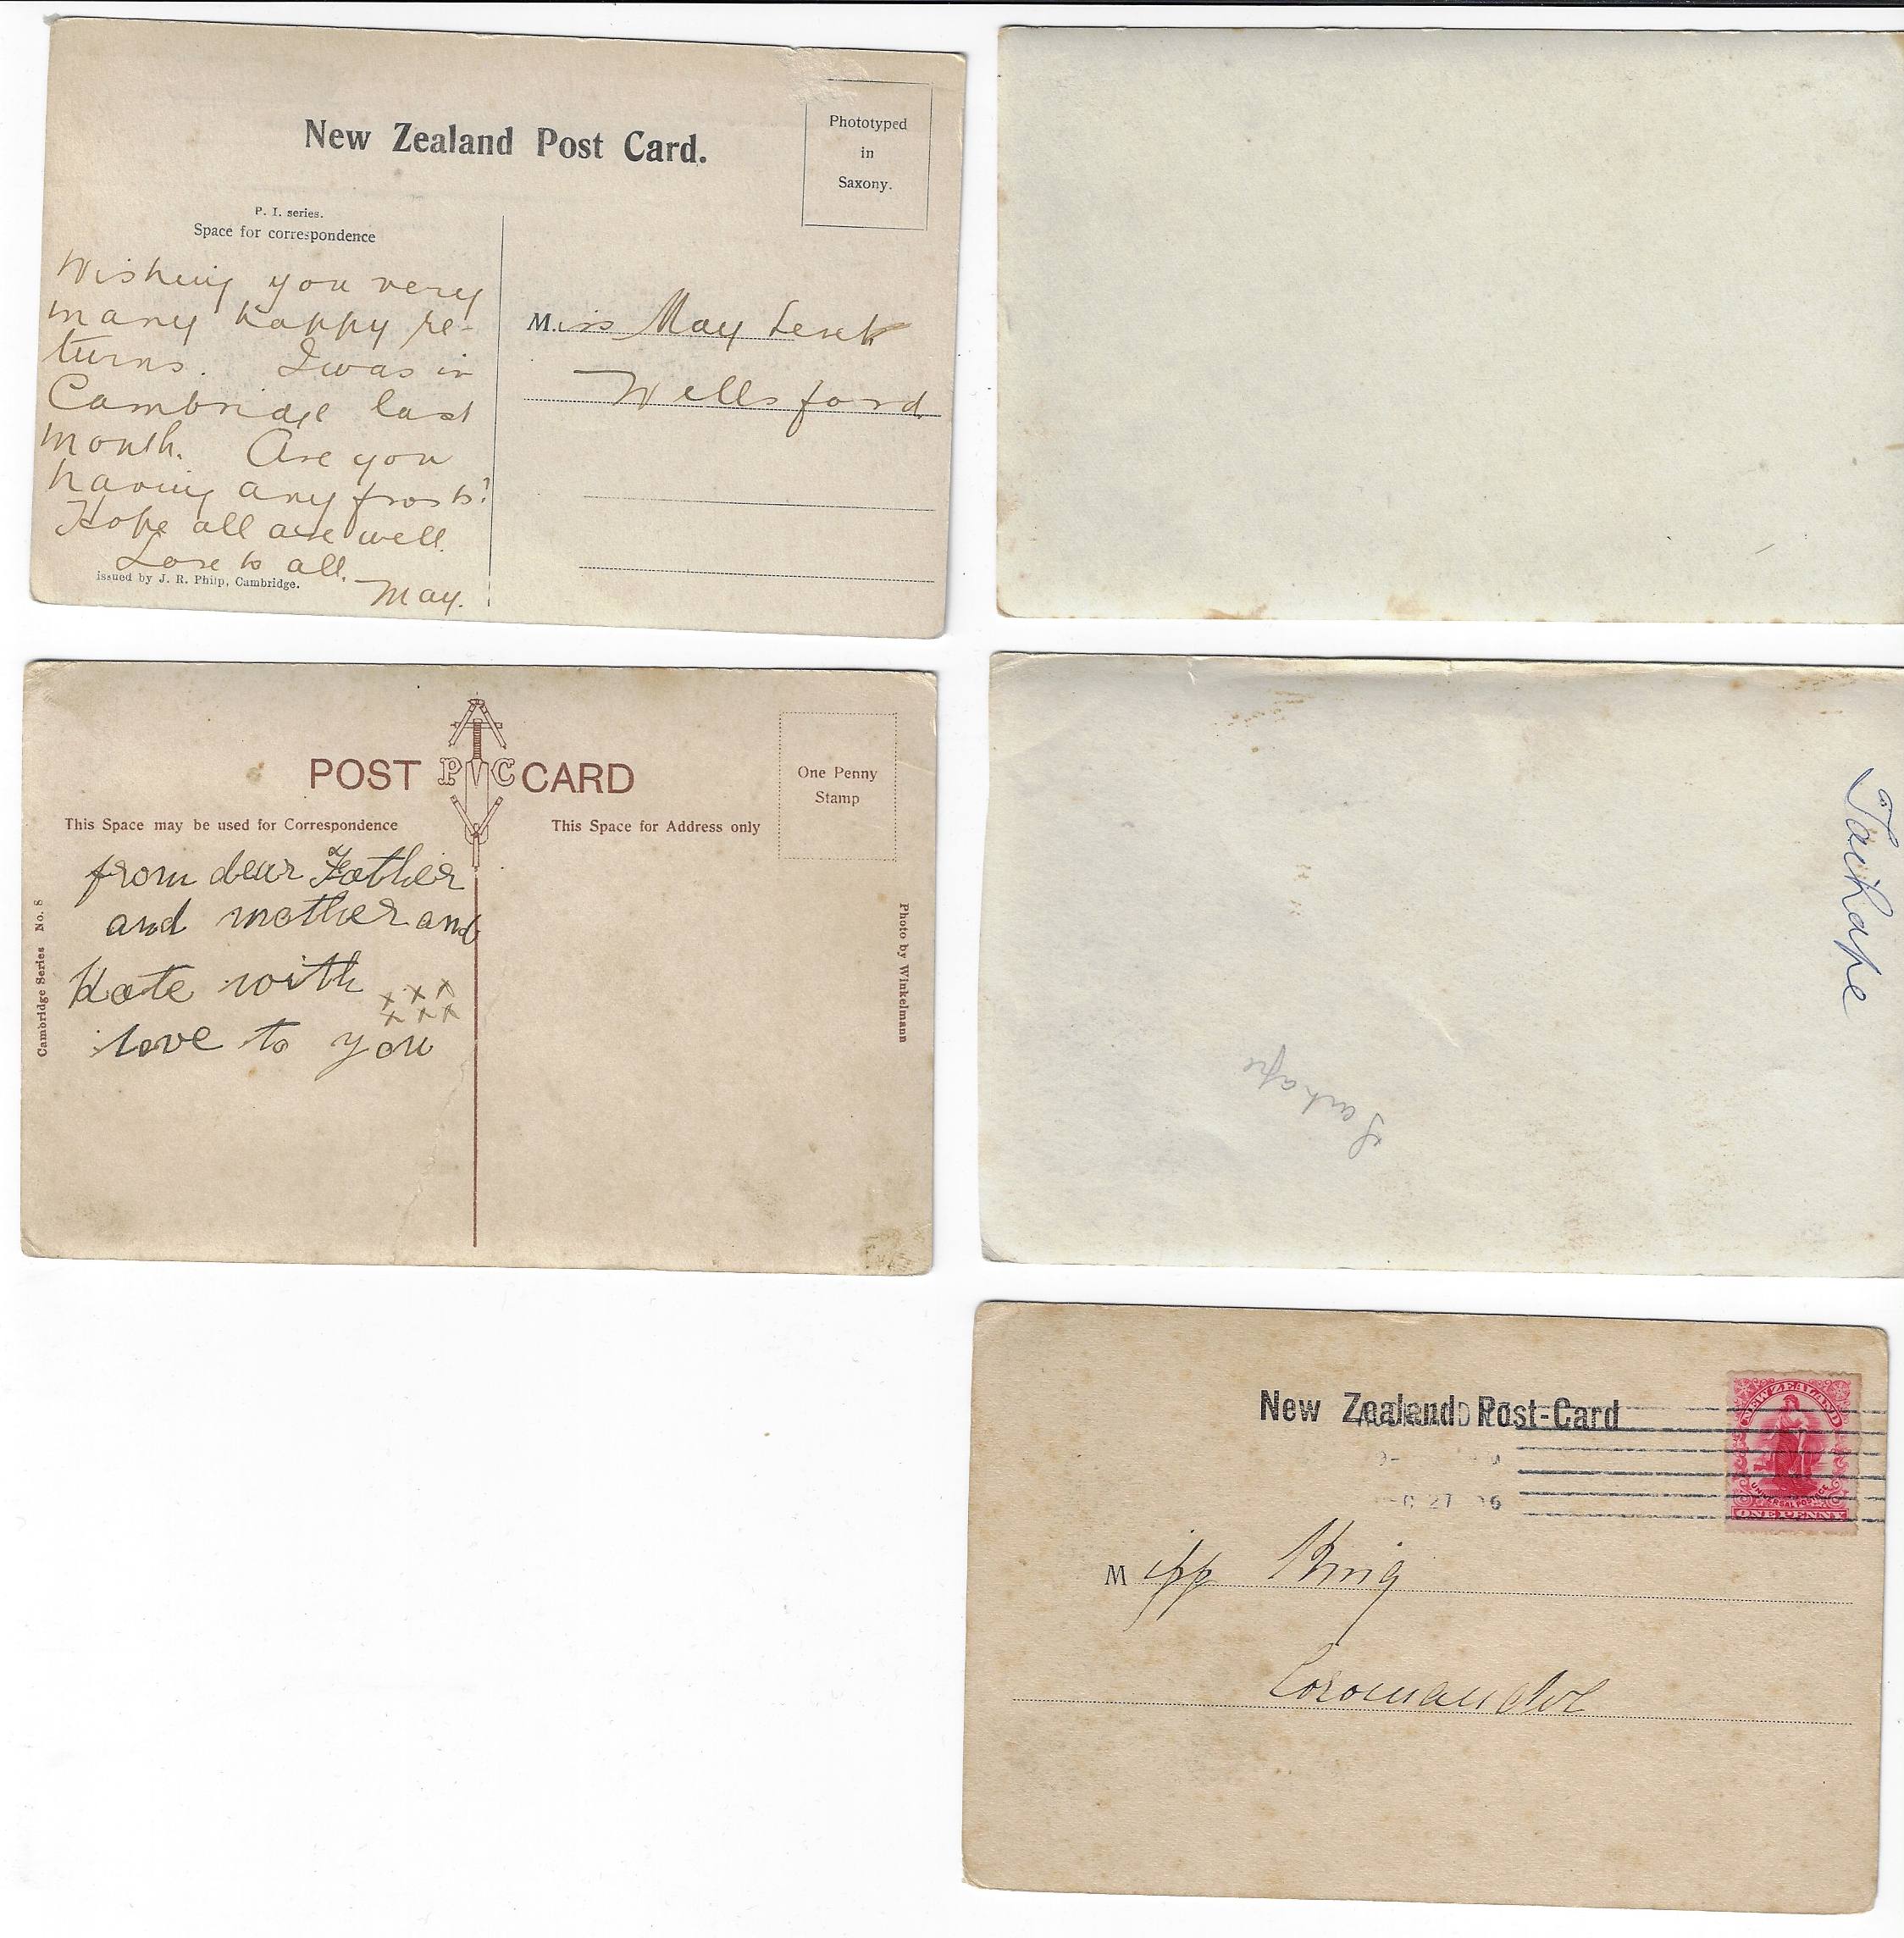 New Zealand Post Card.
Phototyped
in
Saxony.
P. I. series.
Space for correspondence
Wishing you very
many happy re-
turns. I was in
Cambridge last
month. Are you
having any frosts?
Hope all are well.
Love to all.
May.
issued by J. R. Philp, Cambridge.
Miss May
Wellsford
POST PVC CARD
One Penny
Stamp
This Space may be used for Correspondence
This Space for Address only
from dear Father
and mother and
Kate with
x x x
x x x
love to you
Cambridge Series No. 8
Photo by Winkelmann
Taihape
Taihape
New Zealand Post-Card
NEW ZEALAND
UNIVERSAL POSTAGE
ONE PENNY
27
Miss King
Coromandel